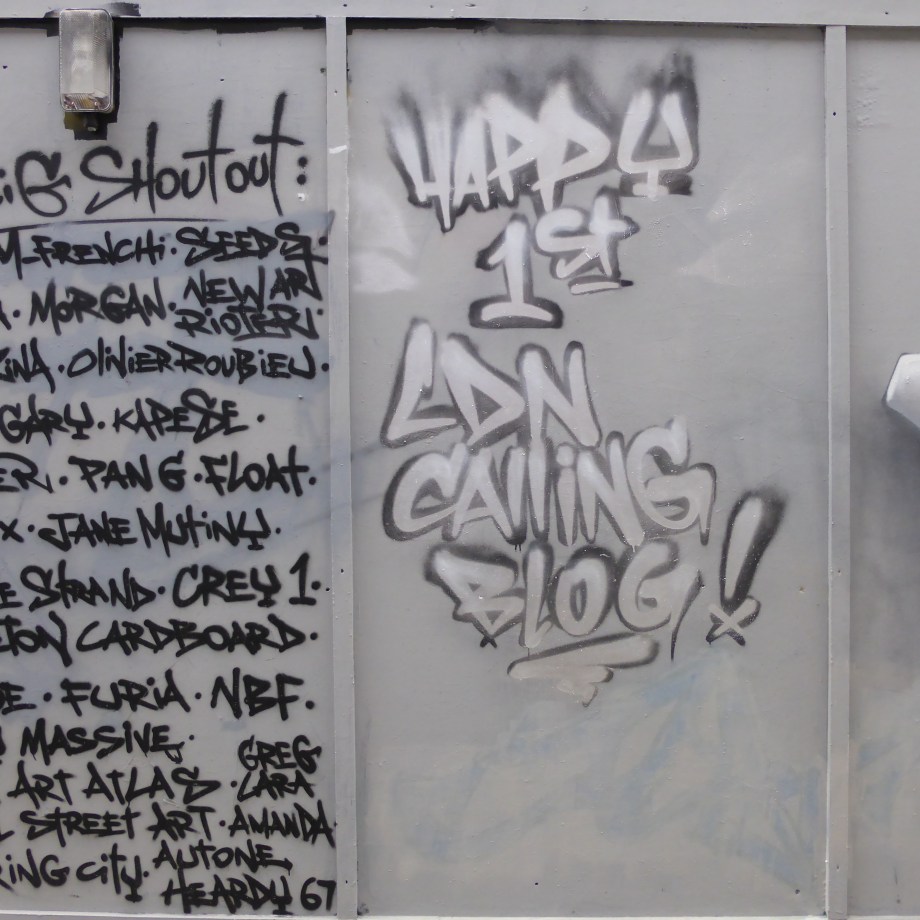 :G SHOUTOUT:
M_FRENCHI. SEEDS
. MORGAN. NEW ART
RIOTER.
KINA. OLIVIER ROUBIEU.
GARY. KAPESE.
ER. PANG. FLOAT.
X. JANE MUTINY.
E STRAND. CREY 1.
TON CARDBOARD.
E. FURIA. NBF.
MASSIVE.
ART ATLAS. GREG LARA
L STREET ART. AMANDA
RING CITY. AUTONE
HEARDY 67
HAPPY
1st
LDN
CALLING
BLOG!